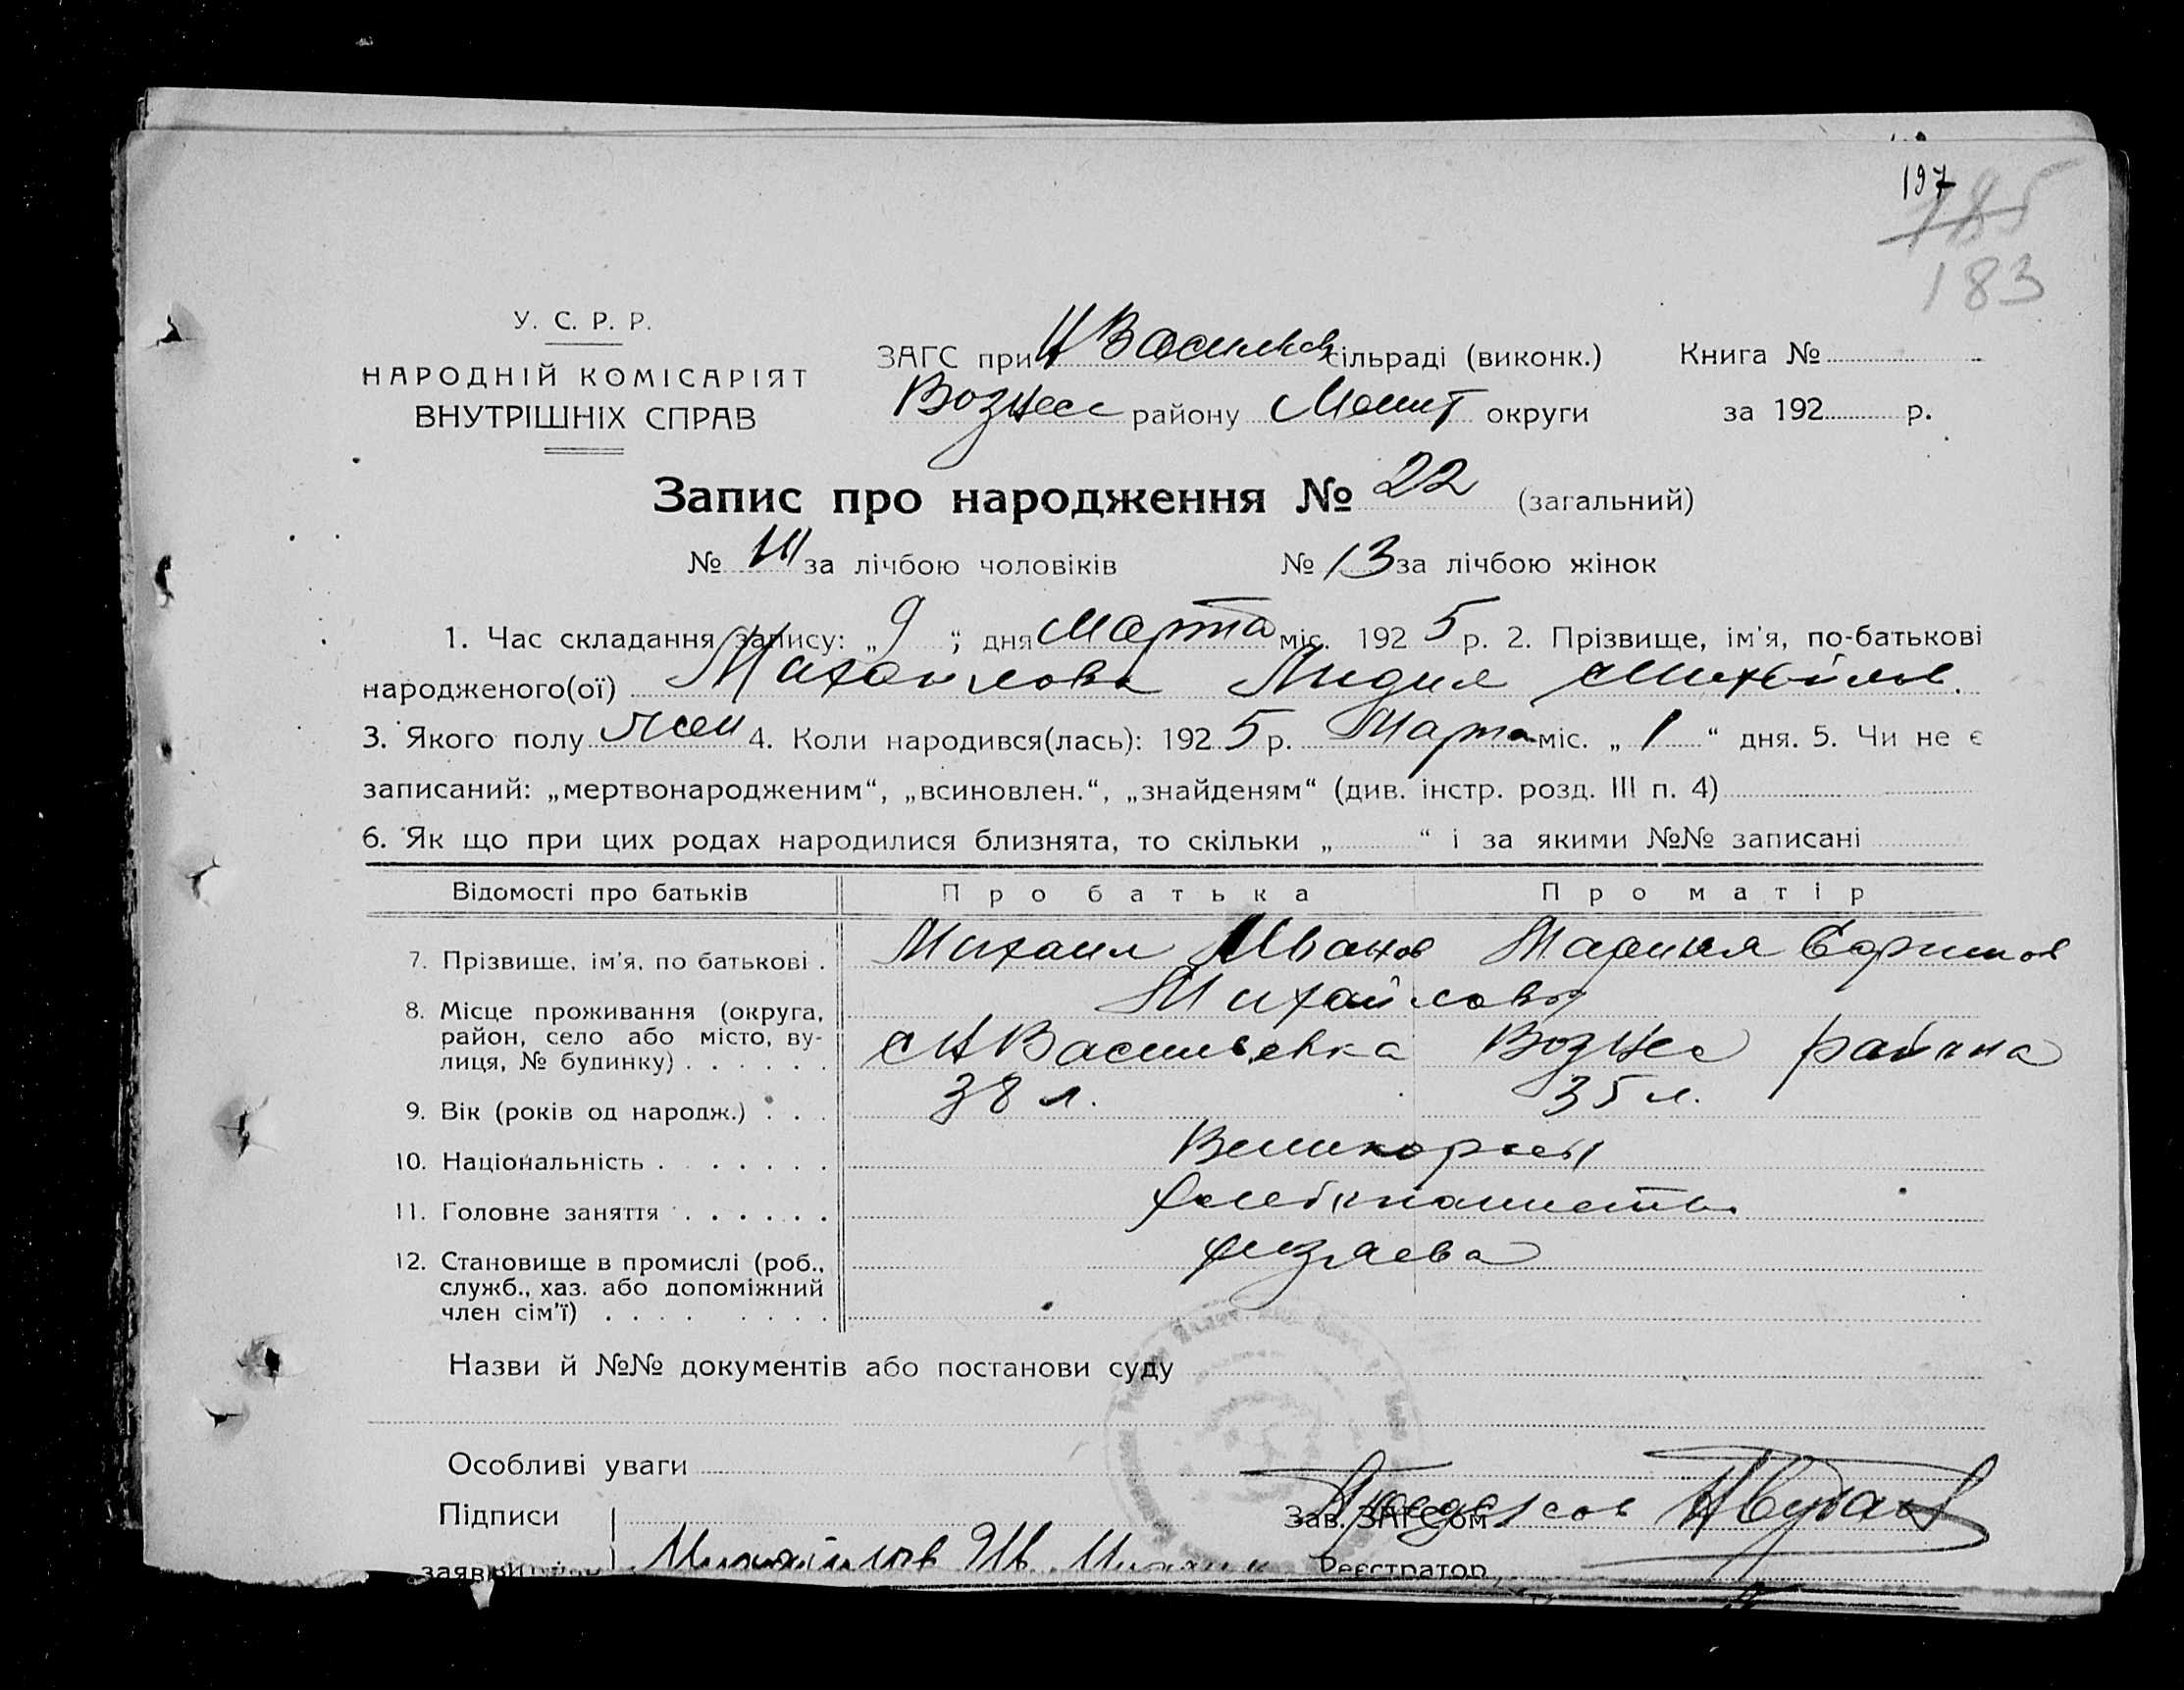 197
785
183
У. С. Р. Р.
НАРОДНІЙ КОМІСАРІЯТ
ВНУТРІШНІХ СПРАВ
ЗАГС при Н Васильев сільраді (виконк.) Книга №
Вознес району Меліт округи за 192 р.
Запис про народження № 22 (загальний)
№ за лічбою чоловіків № 13 за лічбою жінок
1. Час складання запису: „9“; дня Марта міс. 1925 р. 2. Прізвище, ім'я, по-батькові
народженого(ої) Михайлова Лидия Михайлов.
3. Якого полу жен 4. Коли народився(лась): 1925 р. Марта міс. „1“ дня. 5. Чи не є
записаний: „мертвонародженим“, „всиновлен.“, „знайденям“ (див. інстр. розд. III п. 4)
6. Як що при цих родах народилися близнята, то скільки „ “ і за якими №№ записані
Відомості про батьків Про батька Про матір
7. Прізвище, ім'я, по батькові . Михаил Иванов Мария Ефимов
Михайловы
8. Місце проживання (округа, район, село або місто, вулиця, № будинку) . . . . . . с Н Васильевка Вознес района
9. Вік (років од народж.) . . . 38 л. 35 л.
10. Національність . . . . . . . Великорсы
11. Головне заняття . . . . . . хлебопашеств
12. Становище в промислі (роб., служб., хаз. або допоміжний член сім'ї) . . . . . . . . хозяева
Назви й №№ документів або постанови суду
Особливі уваги
Підписи Зав. ЗАГСом
заявн Михайлов Реєстратор